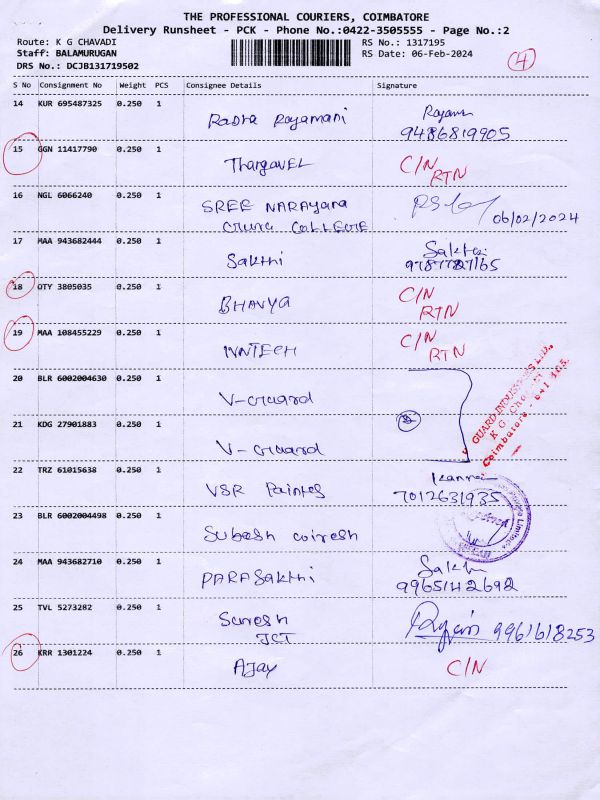 THE PROFESSIONAL COURIERS, COIMBATORE
Delivery Runsheet - PCK - Phone No.:0422-3505555 - Page No.:2
Route: K G CHAVADI
RS No.: 1317195
Staff: BALAMURUGAN
RS Date: 06-Feb-2024
DRS No.: DCJB131719502
4
S No Consignment No Weight PCS Consignee Details Signature
14 KUR 695487325 0.250 1 Radha Rajamani
9486819905
15 GGN 11417790 0.250 1 Thangavel C/N
RTN
16 NGL 6066240 0.250 1 SREE NARAYana
Guru COLLEGE 06/02/2024
17 MAA 943682444 0.250 1 Sakthi Sakthi
9787787165
18 OTY 3805035 0.250 1 BHAVYA C/N
RTN
19 MAA 108455229 0.250 1 INNTECH C/N
RTN
20 BLR 6002004630 0.250 1 V-Guard
GUARD INDUSTRIES LTD.
K G Chavadi
Coimbatore - 641 105.
21 KDG 27901883 0.250 1 V-Guard
22 TRZ 61015638 0.250 1 VSR Paints Kannan
7012631935
23 BLR 6002004498 0.250 1 Subash Giresh
24 MAA 943682710 0.250 1 PARASakthi Sakthi
9965142692
25 TVL 5273282 0.250 1 Suresh
JCT 9961618253
26 KRR 1301224 0.250 1 Ajay C/N